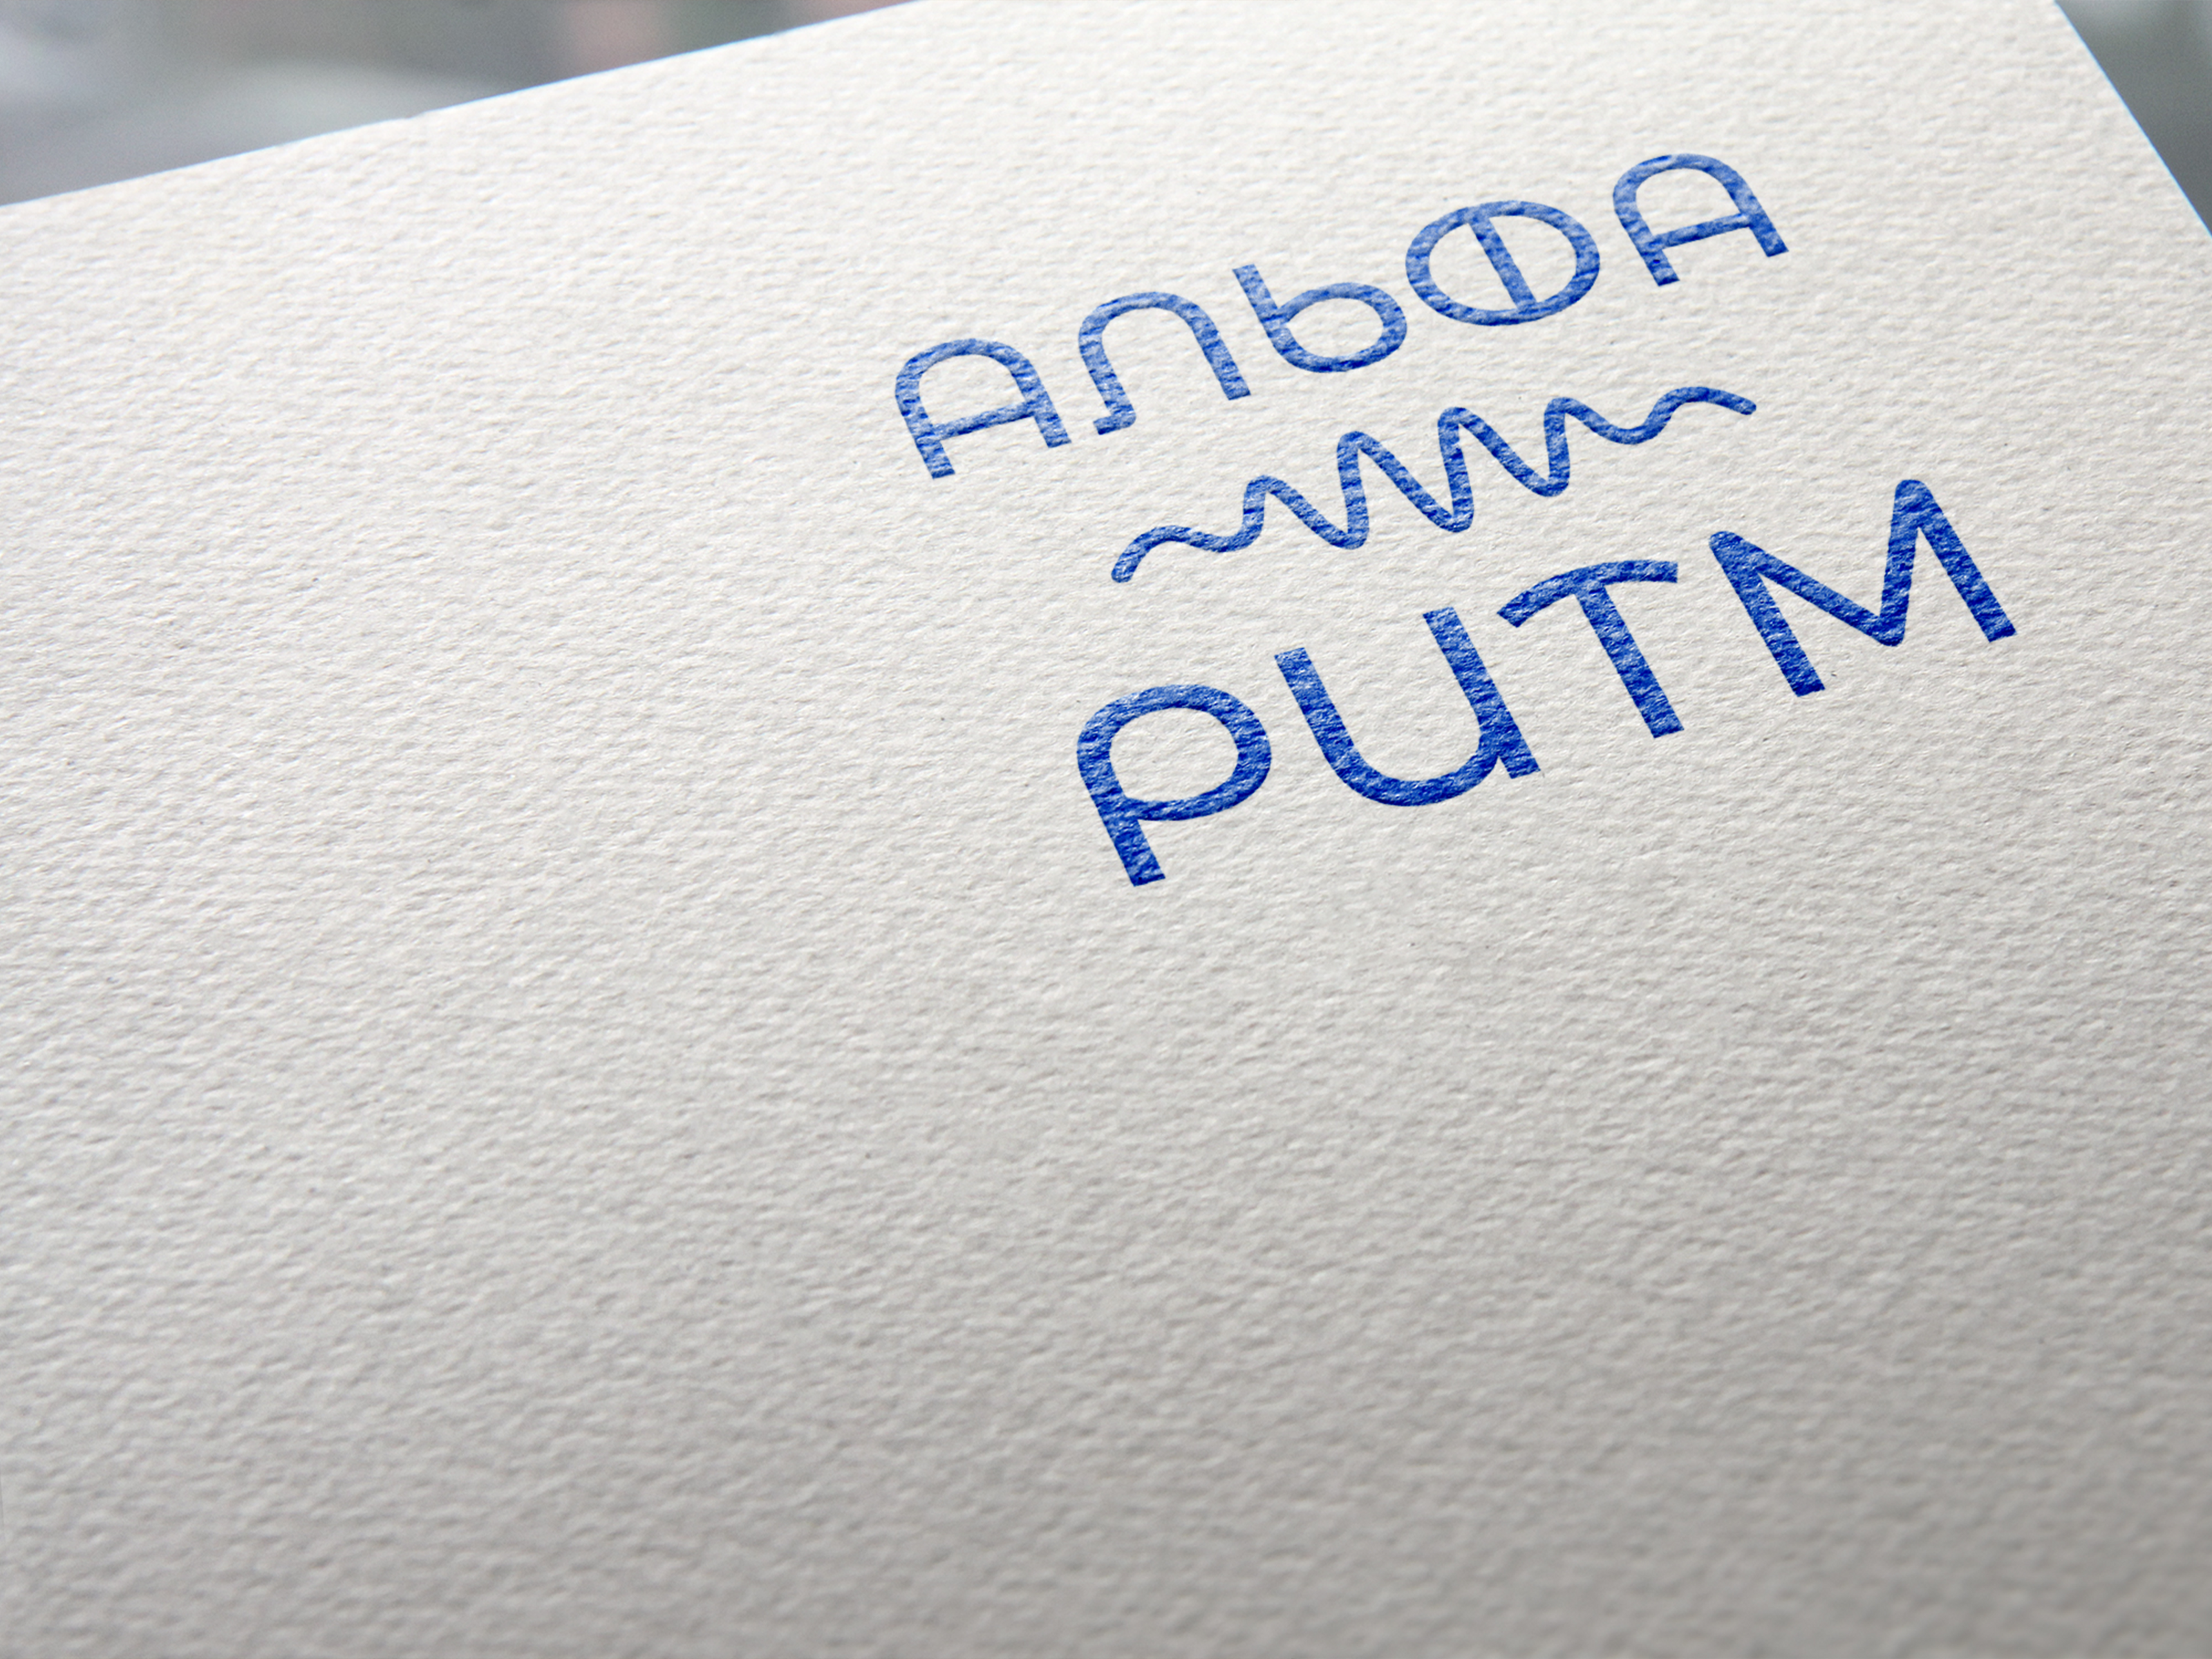 АЛЬФА
РИТМ